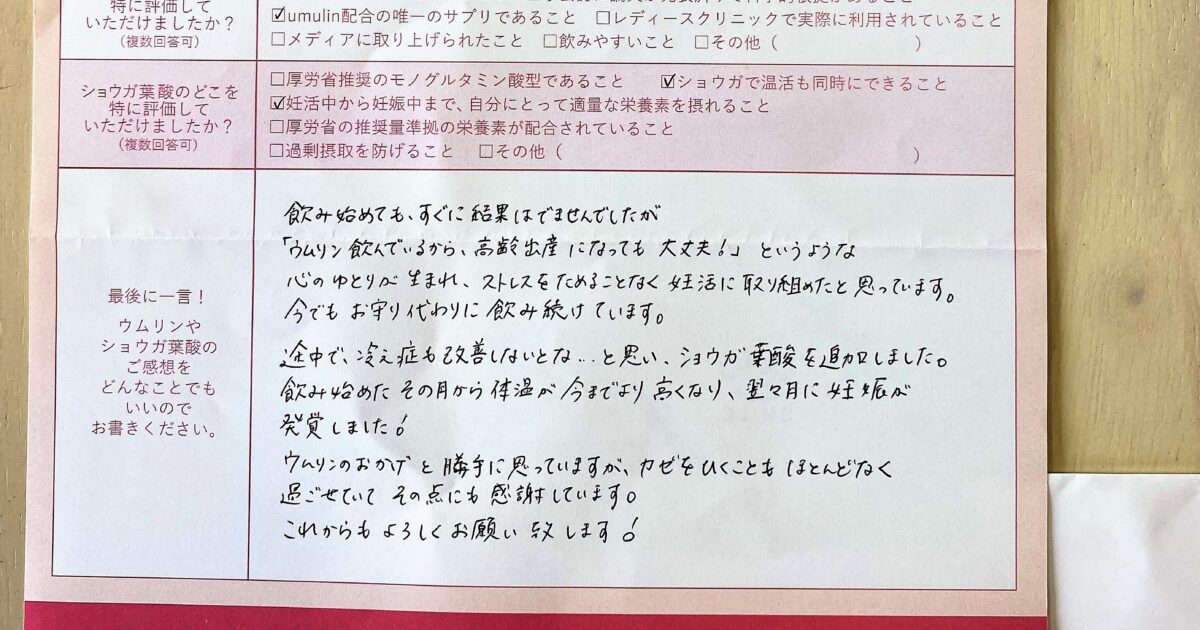 特に評価して
いただけましたか？
(複数回答可)
☑umulin配合の唯一のサプリであること □レディースクリニックで実際に利用されていること
□メディアに取り上げられたこと □飲みやすいこと □その他（ ）
ショウガ葉酸のどこを
特に評価して
いただけましたか？
(複数回答可)
□厚労省推奨のモノグルタミン酸型であること ☑ショウガで温活も同時にできること
☑妊活中から妊娠中まで、自分にとって適量な栄養素を摂れること
□厚労省の推奨量準拠の栄養素が配合されていること
□過剰摂取を防げること □その他（ ）
最後に一言！
ウムリンや
ショウガ葉酸の
ご感想を
どんなことでも
いいので
お書きください。
飲み始めても、すぐに結果はでませんでしたが
「ウムリン飲んでいるから、高齢出産になっても大丈夫！」というような
心のゆとりが生まれ、ストレスをためることなく妊活に取り組めたと思っています。
今でもお守り代わりに飲み続けています。
途中で、冷え症も改善しないとな…と思い、ショウガ葉酸を追加しました。
飲み始めたその月から体温が今までより高くなり、翌々月に妊娠が
発覚しました！
ウムリンのおかげと勝手に思っていますが、カゼをひくこともほとんどなく
過ごせていてその点にも感謝しています。
これからもよろしくお願い致します！